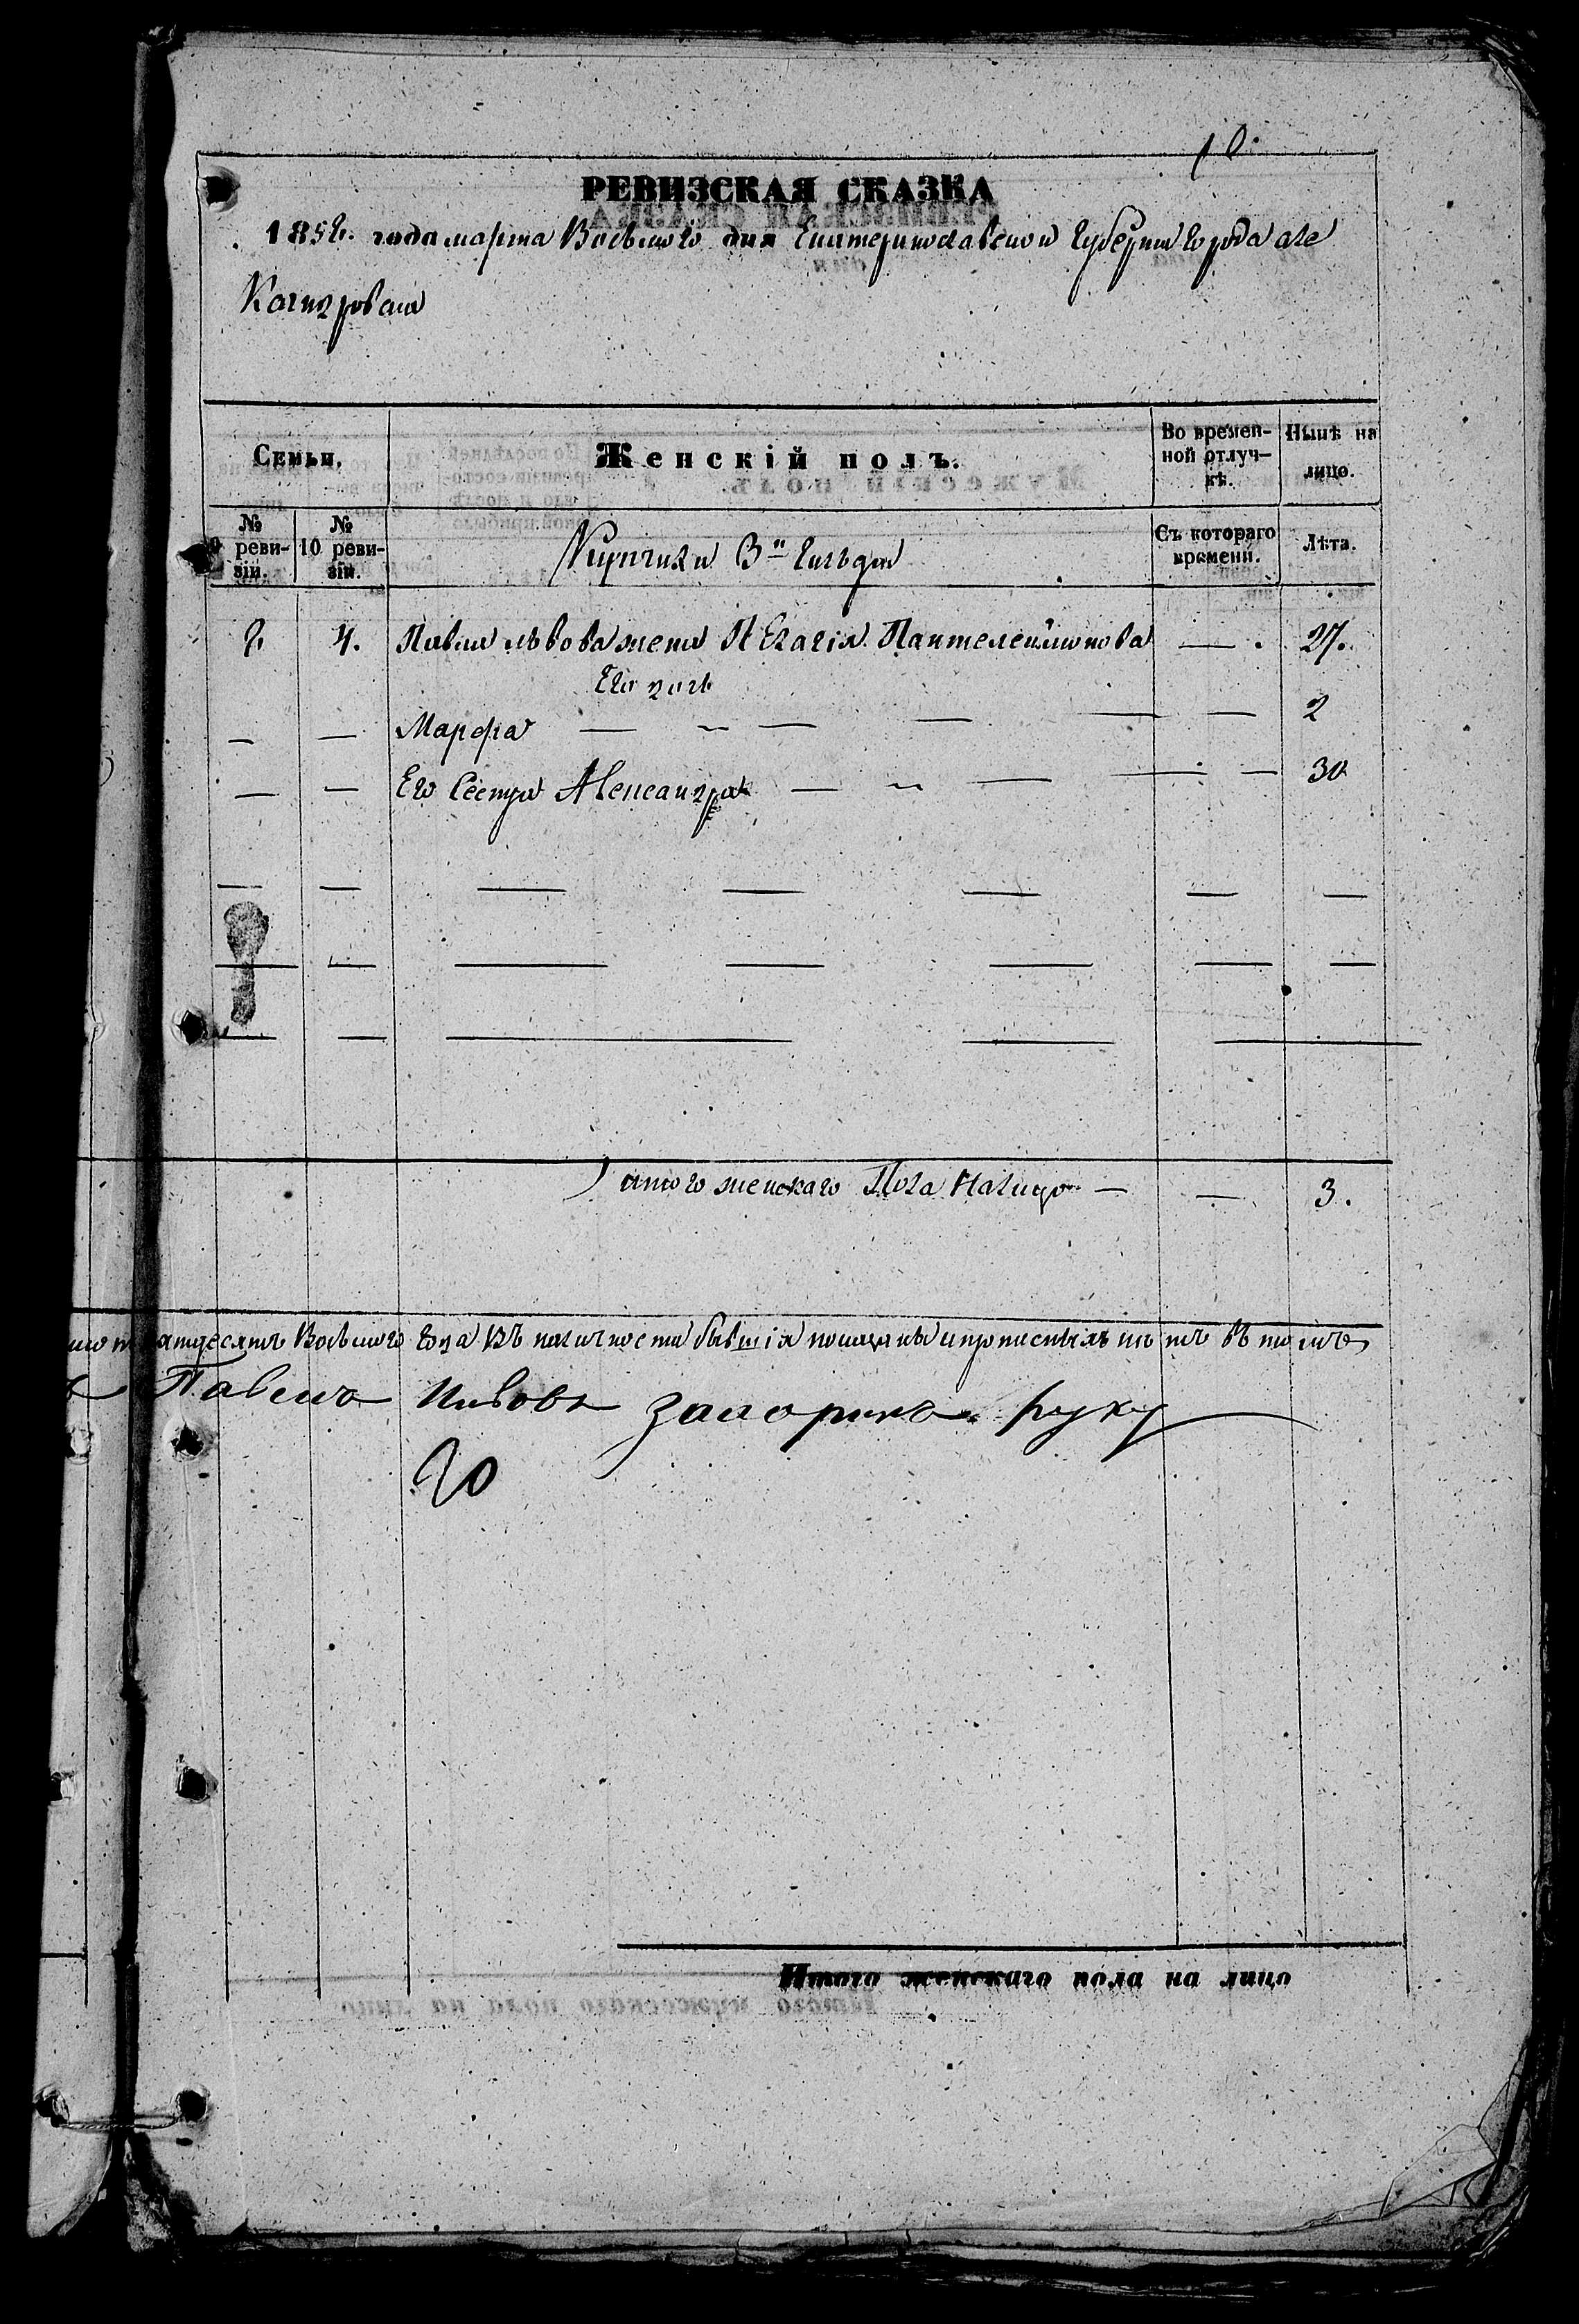 10.
РЕВИЗСКАЯ СКАЗКА
1858. года марта Восьмого дня Екатеринославской Губернии города Але
Ксандровска
Семьи.
Женскій полъ.
Во времен-
ной отлуч-
кѣ.
Нынѣ на
лицо.
№
9 реви-
зіи.
№
10 реви-
зіи.
Купчихи 3й Гильдіи
Съ котораго
времени.
Лѣта.
4. Павла Львова жена Пелагія Пантелеймонова — 27.
Его дочь
— — Марфа — — — — — — 2
— — Его Сестра Александра — — — — — 30
итого женскаго Пола Налицо — — 3.
пятдесятъ Восьмого Года Въ наличности бывшія показаны и прописныхъ нѣтъ въ томъ
Павелъ Львовъ руку
20
Итого женскаго пола на лицо